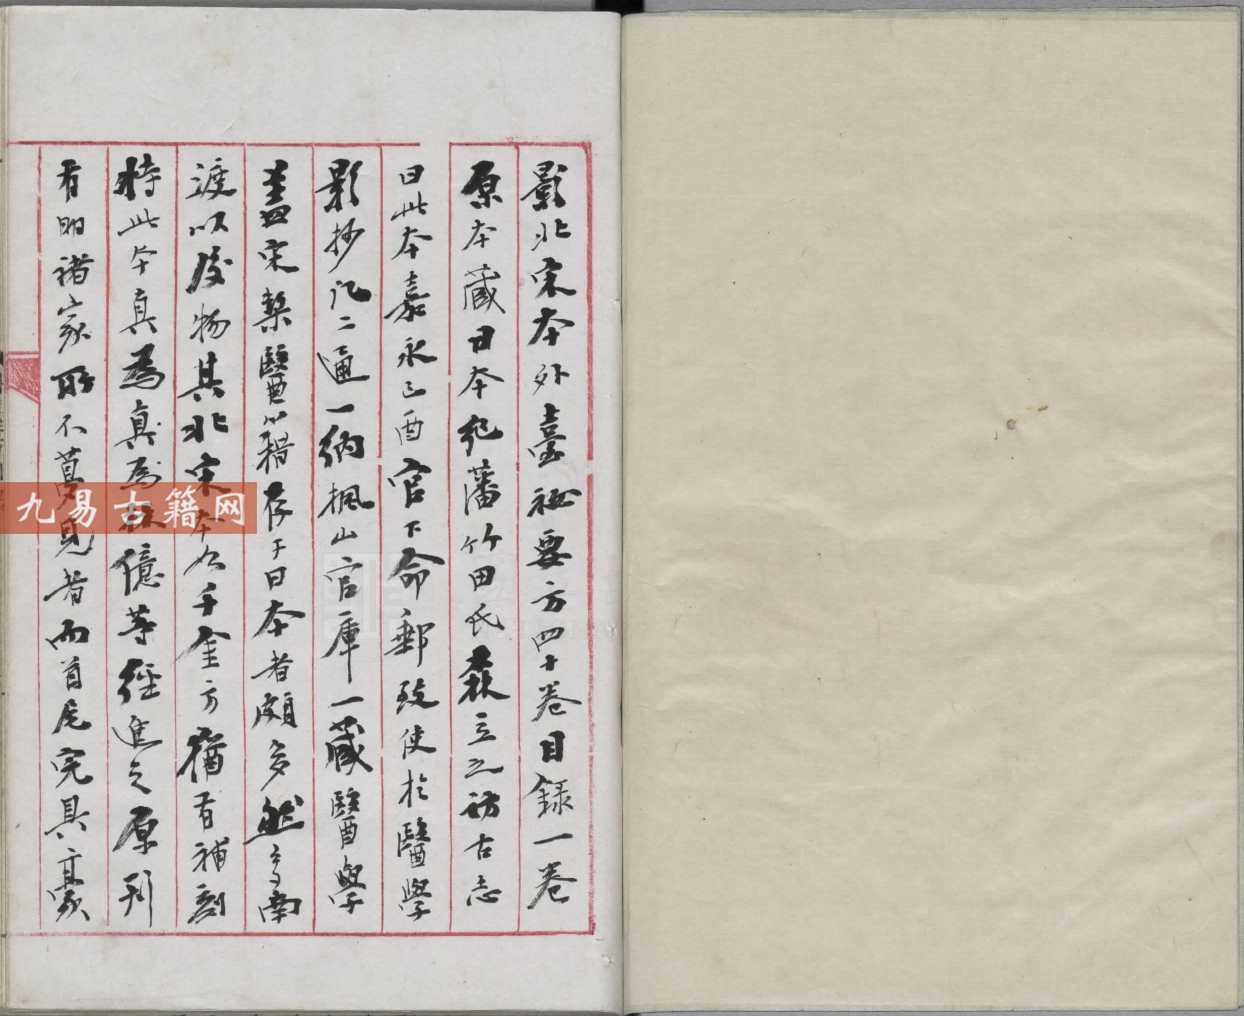 影北宋本外臺祕要方四十卷目録一卷
原本藏日本紀藩竹田氏森立之訪古志
曰此本嘉永己酉官下命郵致使於醫學
影抄凡二通一納楓山官庫一藏醫學
盖宋槧醫籍存于日本者頗多然多南
渡以後物其北宋本如千金方猶有補刻
特此本真為真為林億等經進之原刊
有明諸家所不夢見者而首尾完具豪
九易古籍网